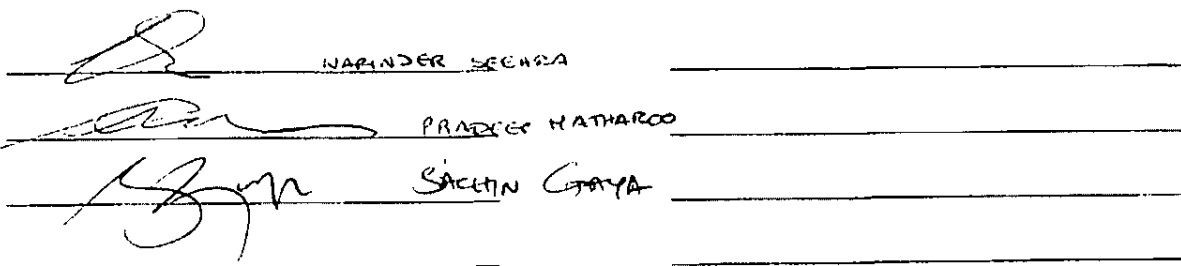 NARINDER SEEHRA
PRADEEP MATHAROO
SACHIN GAYA